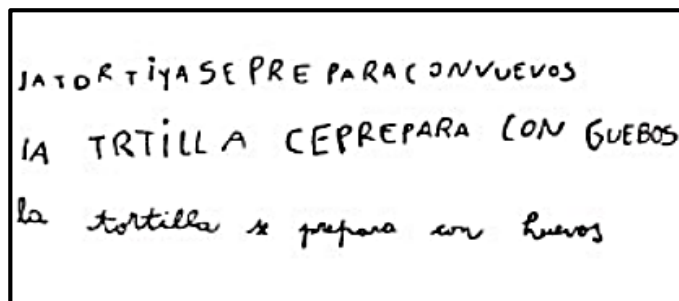 lATORTiYASE PRE PARACONVUEVOS
lA TRTiLLA CEPREPARA CON GUEBOS
la tortilla se prepara con huevos